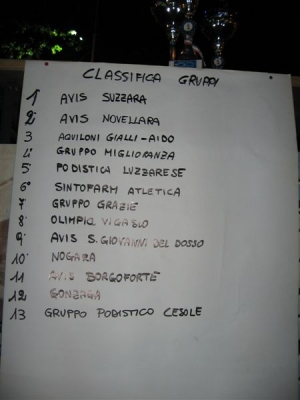 CLASSIFICA GRUPPI
1° AVIS SUZZARA
2° AVIS NOVELLARA
3 AQUILONI GIALLI-AIDO
4° GRUPPO MIGLIORANZA
5 PODISTICA LUZZARESE
6° SINTOFARM ATLETICA
7 GRUPPO GRAZIE
8° OLIMPIC VIGASIO
9° AVIS S.GIOVANNI DEL DOSSO
10° NOGARA
11 AVIS BORGOFORTE
12 GONZAGA
13 GRUPPO PODISTICO CESOLE